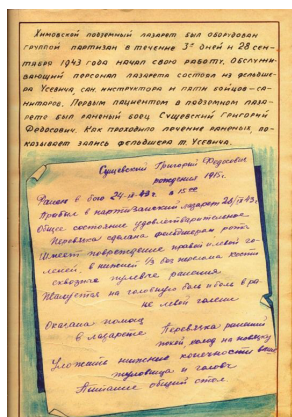 Химовский подземный лазарет был оборудован
группой партизан в течение 3х дней и 28 сен-
тября 1943 года начал свою работу. Обслужи-
вающий персонал лазарета состоял из фельдше-
ра Усевича, сан. инструктора и пяти бойцов-са-
нитаров. Первым пациентом в подземном лаза-
рете был раненый боец Сущевский Григорий
Федосович. Как проходило лечение раненых, по-
казывает запись фельдшера т. Усевича.
Сущевский Григорий Федосович
рождения 1915г.
Ранен в бою 24.IX.43г. в 15
Прибыл в партизанский лазарет 28/IX 43г.
Общее состояние удовлетворительное
Перевязка сделана фельдшером роты
Имеет повреждение правой и левой го-
леней, в нижней 1/3 без перелома кости
сквозные пулевые ранения
Жалуется на головную боль и боль в ра-
не левой голени
Оказана помощь
в лазарете Перевязка ранений
покой, холод на повязку
Уложить нижние конечности выше
туловища и головы
Питание общий стол